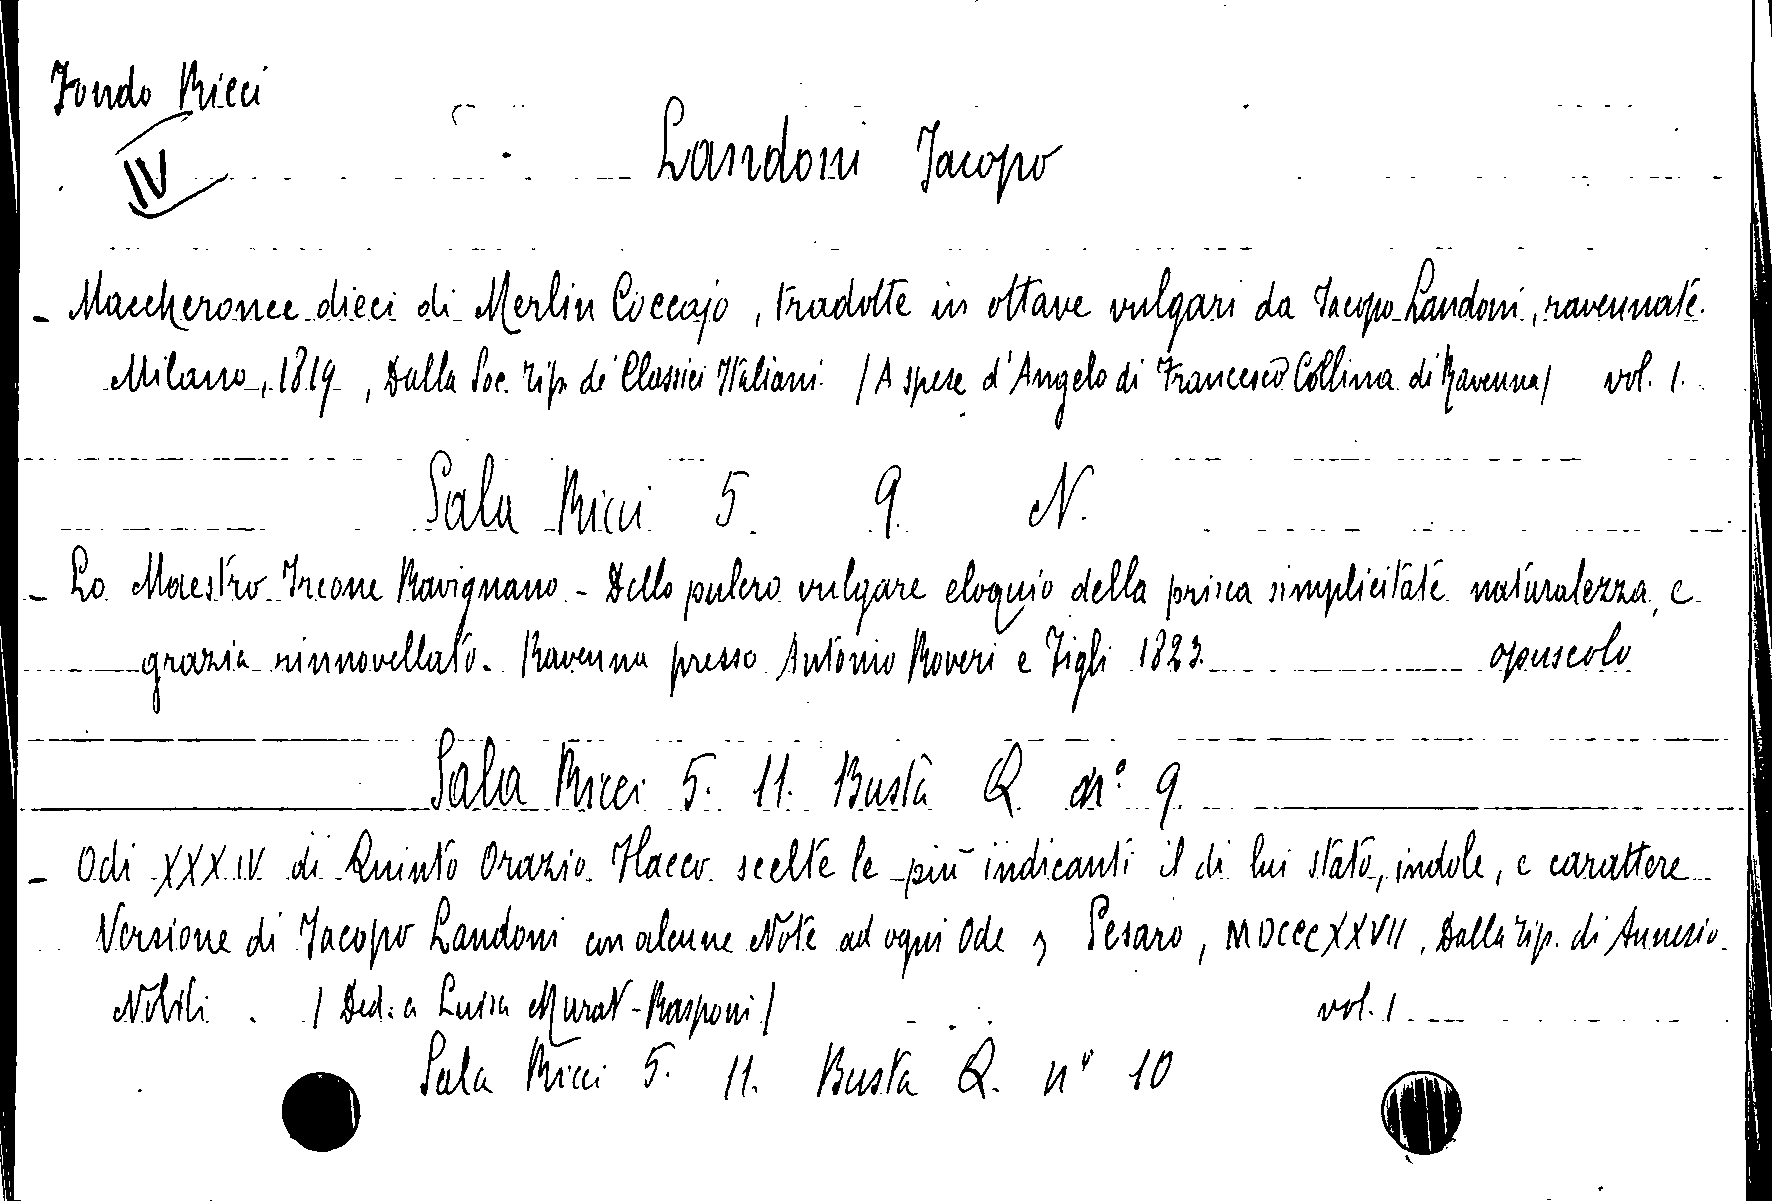 Fondo Ricci
IV
Landoni Jacopo
- Maccheronee dieci di Merlin Coccajo, tradotte in ottave vulgari da Jacopo Landoni, ravennate.
Milano, 1819, Dalla Soc. Tip. de' Classici Italiani. / A spese d'Angelo di Francesco Collina di Ravenna / vol. 1.
Sala Ricci 5. 9. N.
- Lo Maestro Ircone Ravignano - Dello pulcro vulgare eloquio della prisca simplicitate naturalezza, e
grazia rinnovellato. Ravenna presso Antonio Roveri e Figli 1823. opuscolo
Sala Ricci 5. 11. Busta Q. n° 9.
- Odi XXXIV di Quinto Orazio Flacco scelte le più indicanti il di lui stato, indole, e carattere
Versione di Jacopo Landoni con alcune Note ad ogni Ode, Pesaro, MDCCCXXVII, Dalla Tip. di Annesio
Nobili. / Ded: a Luisa Murat-Rasponi / vol. 1
Sala Ricci 5. 11. Busta Q. n° 10